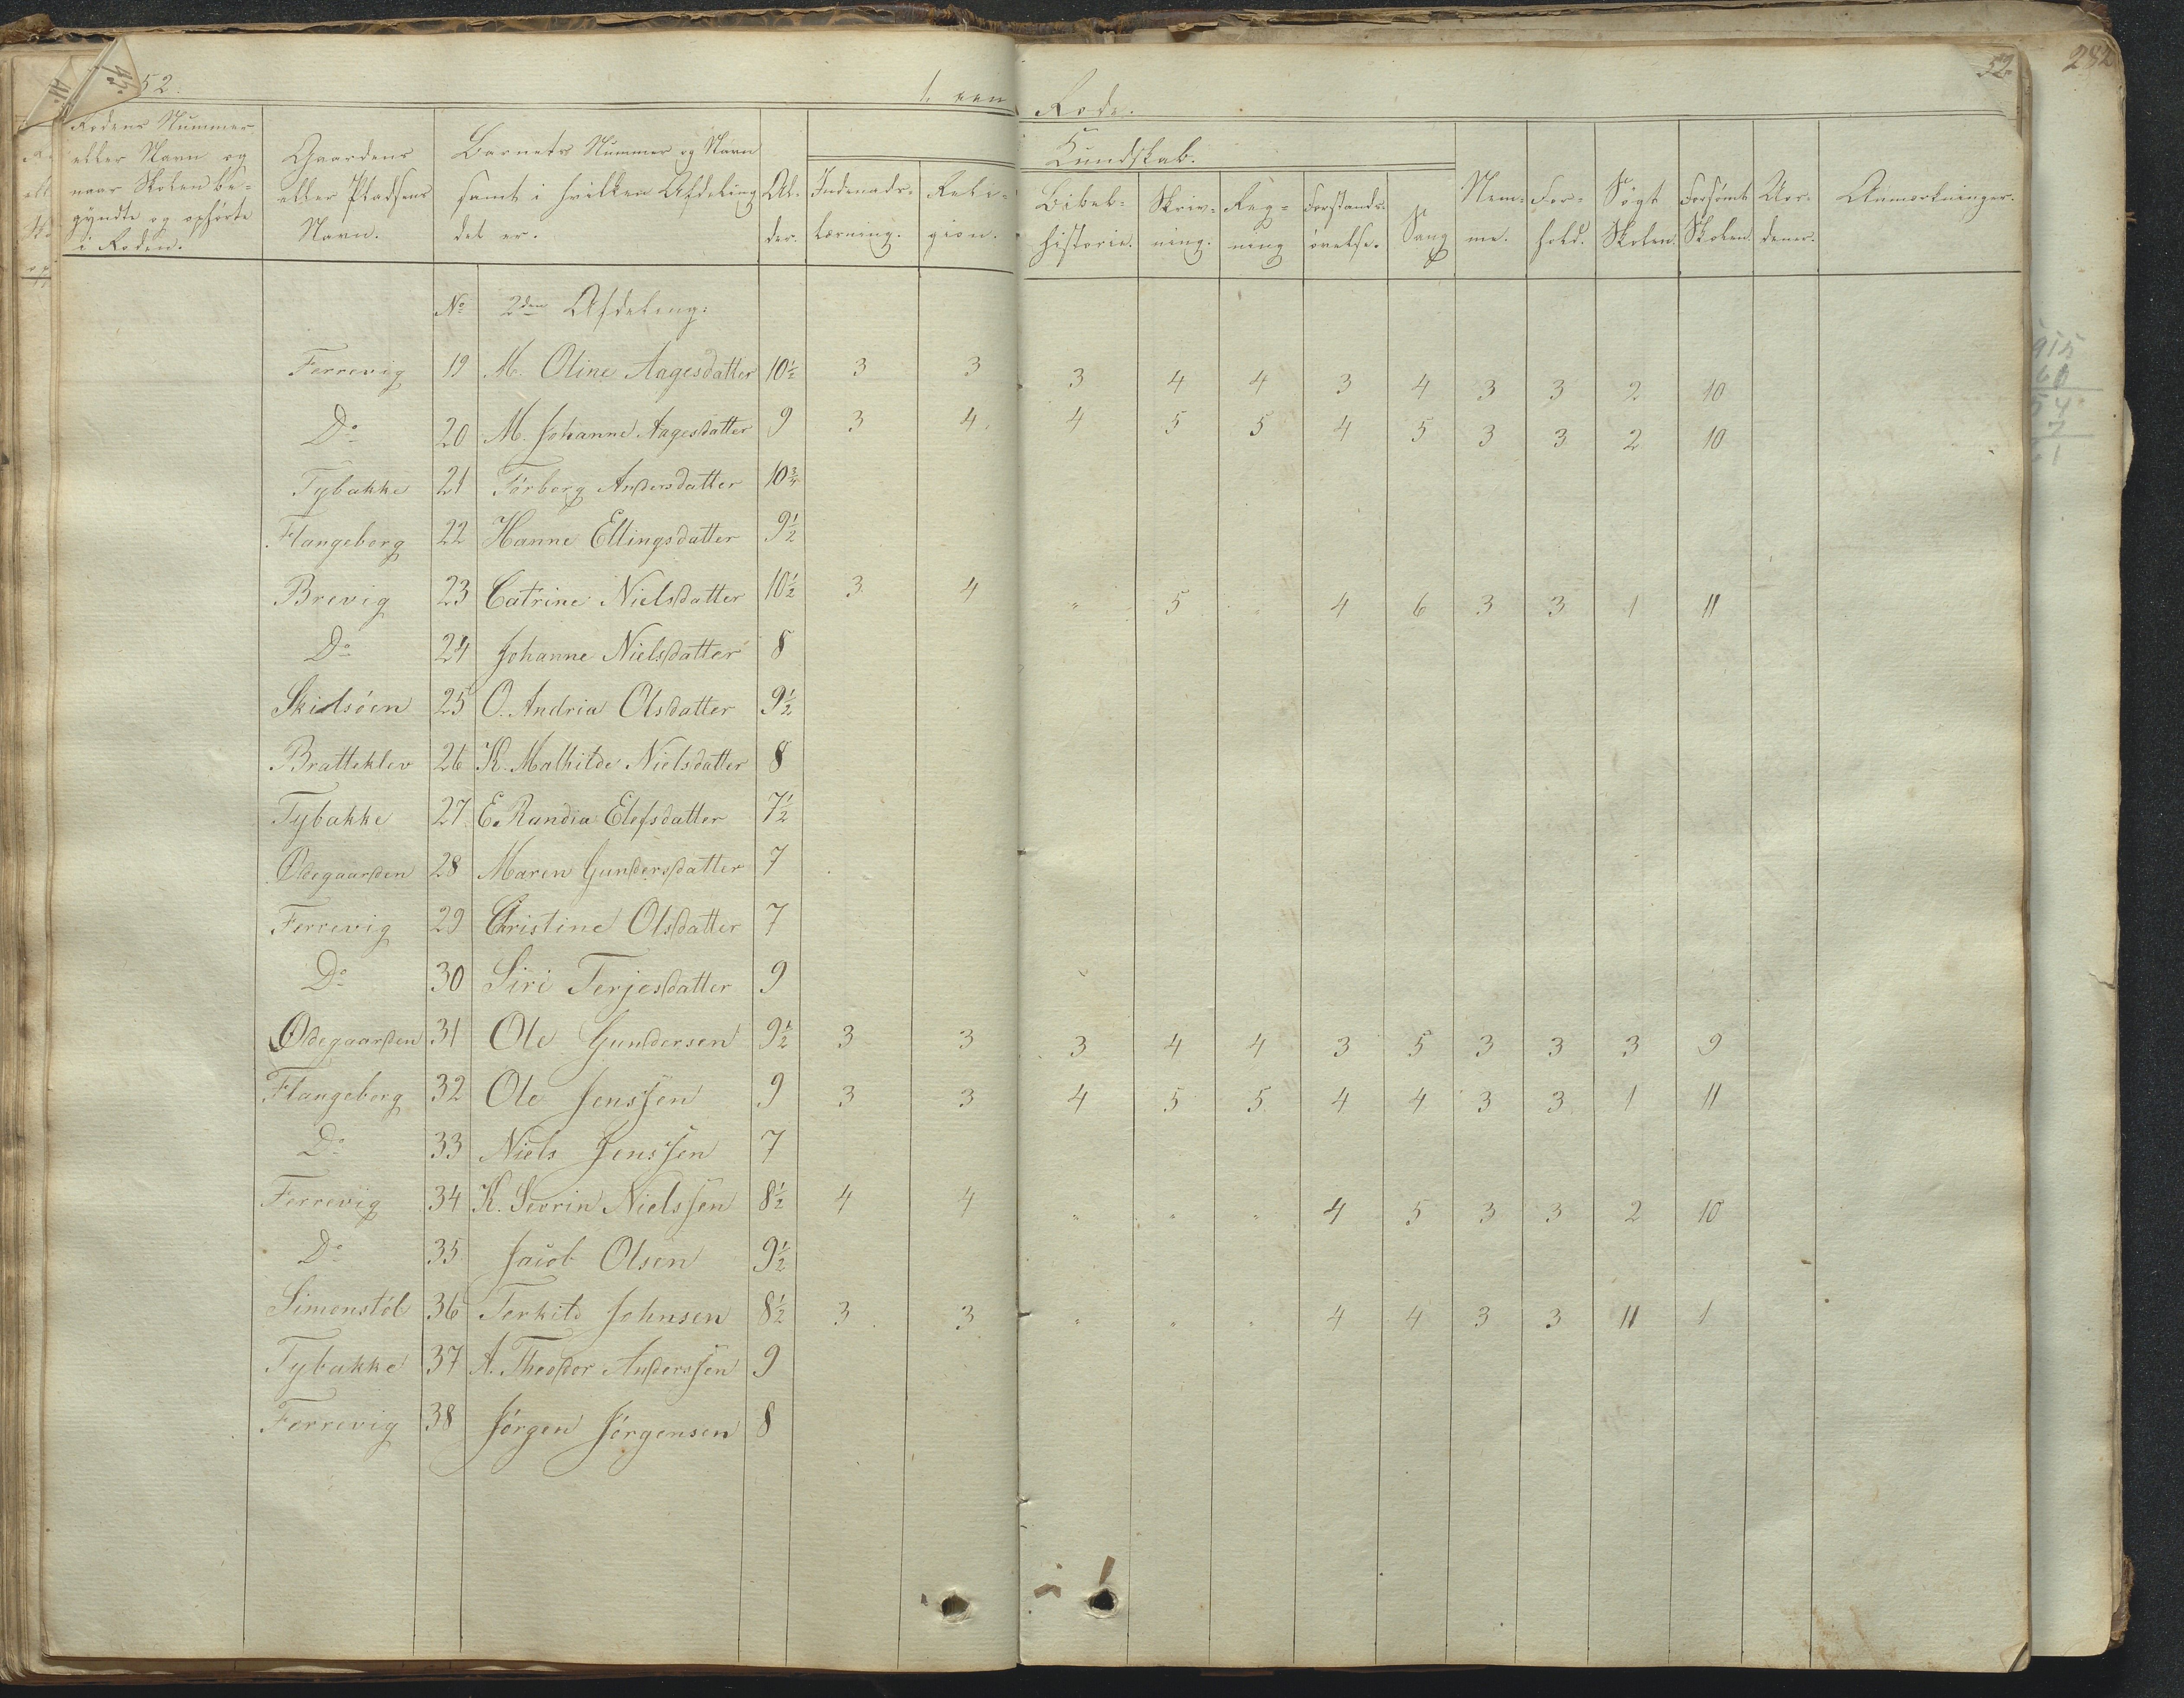 52. 1. een Rode. 52. 282
Rodens Nummer eller Navn og naar Skolen begyndte og ophørte i Roden.
Gaardens eller Pladsens Navn.
Barnets Nummer og Navn samt i hvilken Afdeling det er.
Alder.
Kundskab.
Indenadslæsning.
Religion.
Bibelhistorie.
Skrivning.
Regning
Forstandsøvelse.
Sang
Nemme.
Forhold.
Søgt Skolen.
Forsømt Skolen.
Anmærkninger.
No 2den Afdeling:
Ferrevig 19 M. Oline Aagesdatter 10½ 3 3 3 4 4 3 4 3 3 2 10
Do 20 M. Johanne Aagesdatter 9 3 4 4 5 5 4 5 3 3 2 10
Tybakke 21 Torborg Andersdatter 10¾
Flangeborg 22 Hanne Ellingsdatter 9½
Brevig 23 Catrine Nielsdatter 10½ 3 4 " 5 " 4 6 3 3 1 11
Do 24 Johanne Nielsdatter 8
Skidsøen 25 O. Andrea Olsdatter 9½
Bratteklev 26 K. Mathilde Nielsdatter 8
Tybakke 27 E. Randia Elefsdatter 7½
Ødegaarden 28 Maren Gundersdatter 7
Ferrevig 29 Christine Olsdatter 7
Do 30 Siri Terjesdatter 9
Ødegaarden 31 Ole Gundersen 9½ 3 3 3 4 4 3 5 3 3 3 9
Flangeborg 32 Ole Jenssen 9 3 3 4 5 5 4 4 3 3 1 11
Do 33 Niels Jenssen 7
Ferrevig 34 K. Severin Nielssen 8½ 4 4 " " " 4 5 3 3 2 10
Do 35 Jacob Olsen 9½
Simonstøl 36 Terkild Johnsen 8½ 3 3 " " " 4 4 3 3 11 1
Tybakke 37 A. Theodor Anderssen 9
Ferrevig 38 Jørgen Jørgensen 8